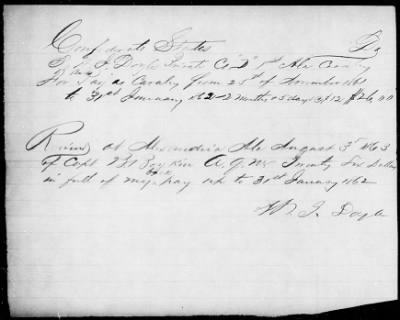 Confederate States Dr
To W J Doyle Privt Co "D" 1st Ala Cavalry
For Pay in Cavalry from 25th of November 1861
to 31st January 1862 2 months 5 days at 12 $26,00
Recvd at Alexandria Ala August 3d 1863
of Capt Boykin A. Q. M. Twenty Six Dollars
in full of my pay up to 31st January 1862
W. J. Doyle